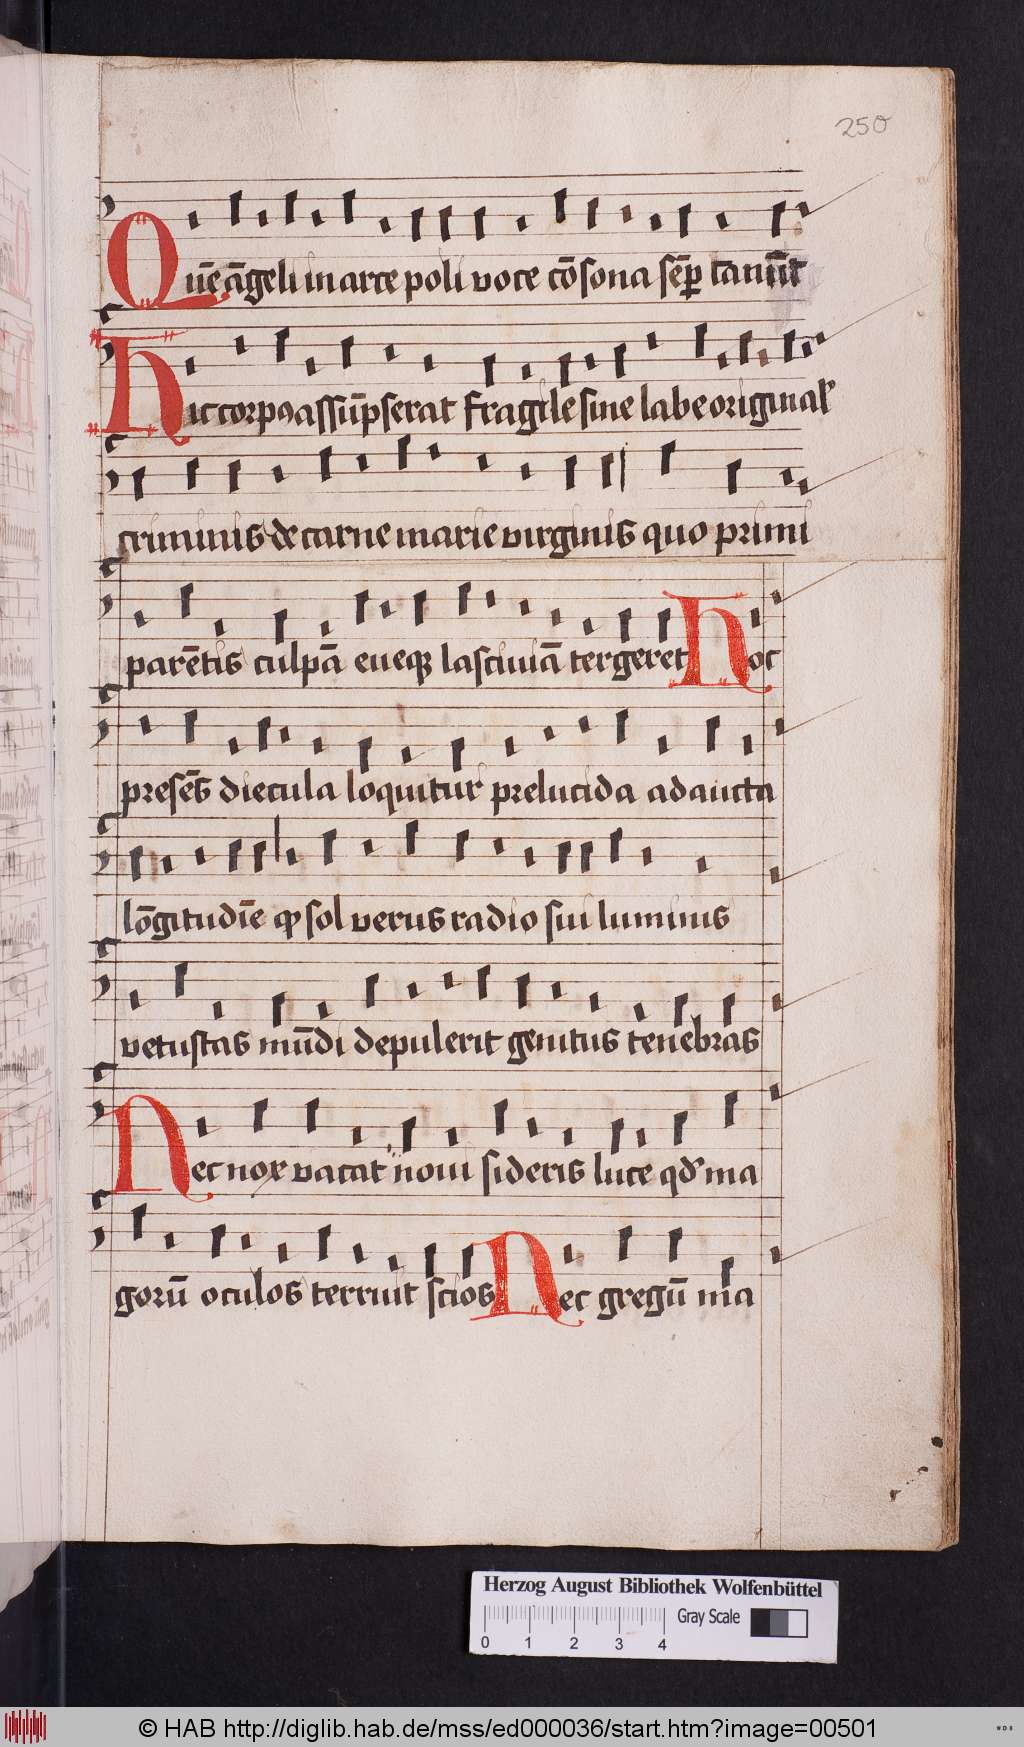 250
Quē āgeli in arce poli voce cōsona sēp canūt
Hic corpꝰ assūpserat fragile sine labe original'
criminis de carne marie virginis quo primi
parētis culpā eueqꝫ lasciuiā tergeret Hoc
presēs diecula loquitur prelucida adaucta
lōgitudīe qͥ sol verus radio sui luminis
vetustas mūdi depulerit genitus tenebras
Nec nox vacat noui sideris luce qd' ma
gorū oculos terruit scios Nec gregū ma
Herzog August Bibliothek Wolfenbüttel
Gray Scale
0 1 2 3 4
© HAB http://diglib.hab.de/mss/ed000036/start.htm?image=00501